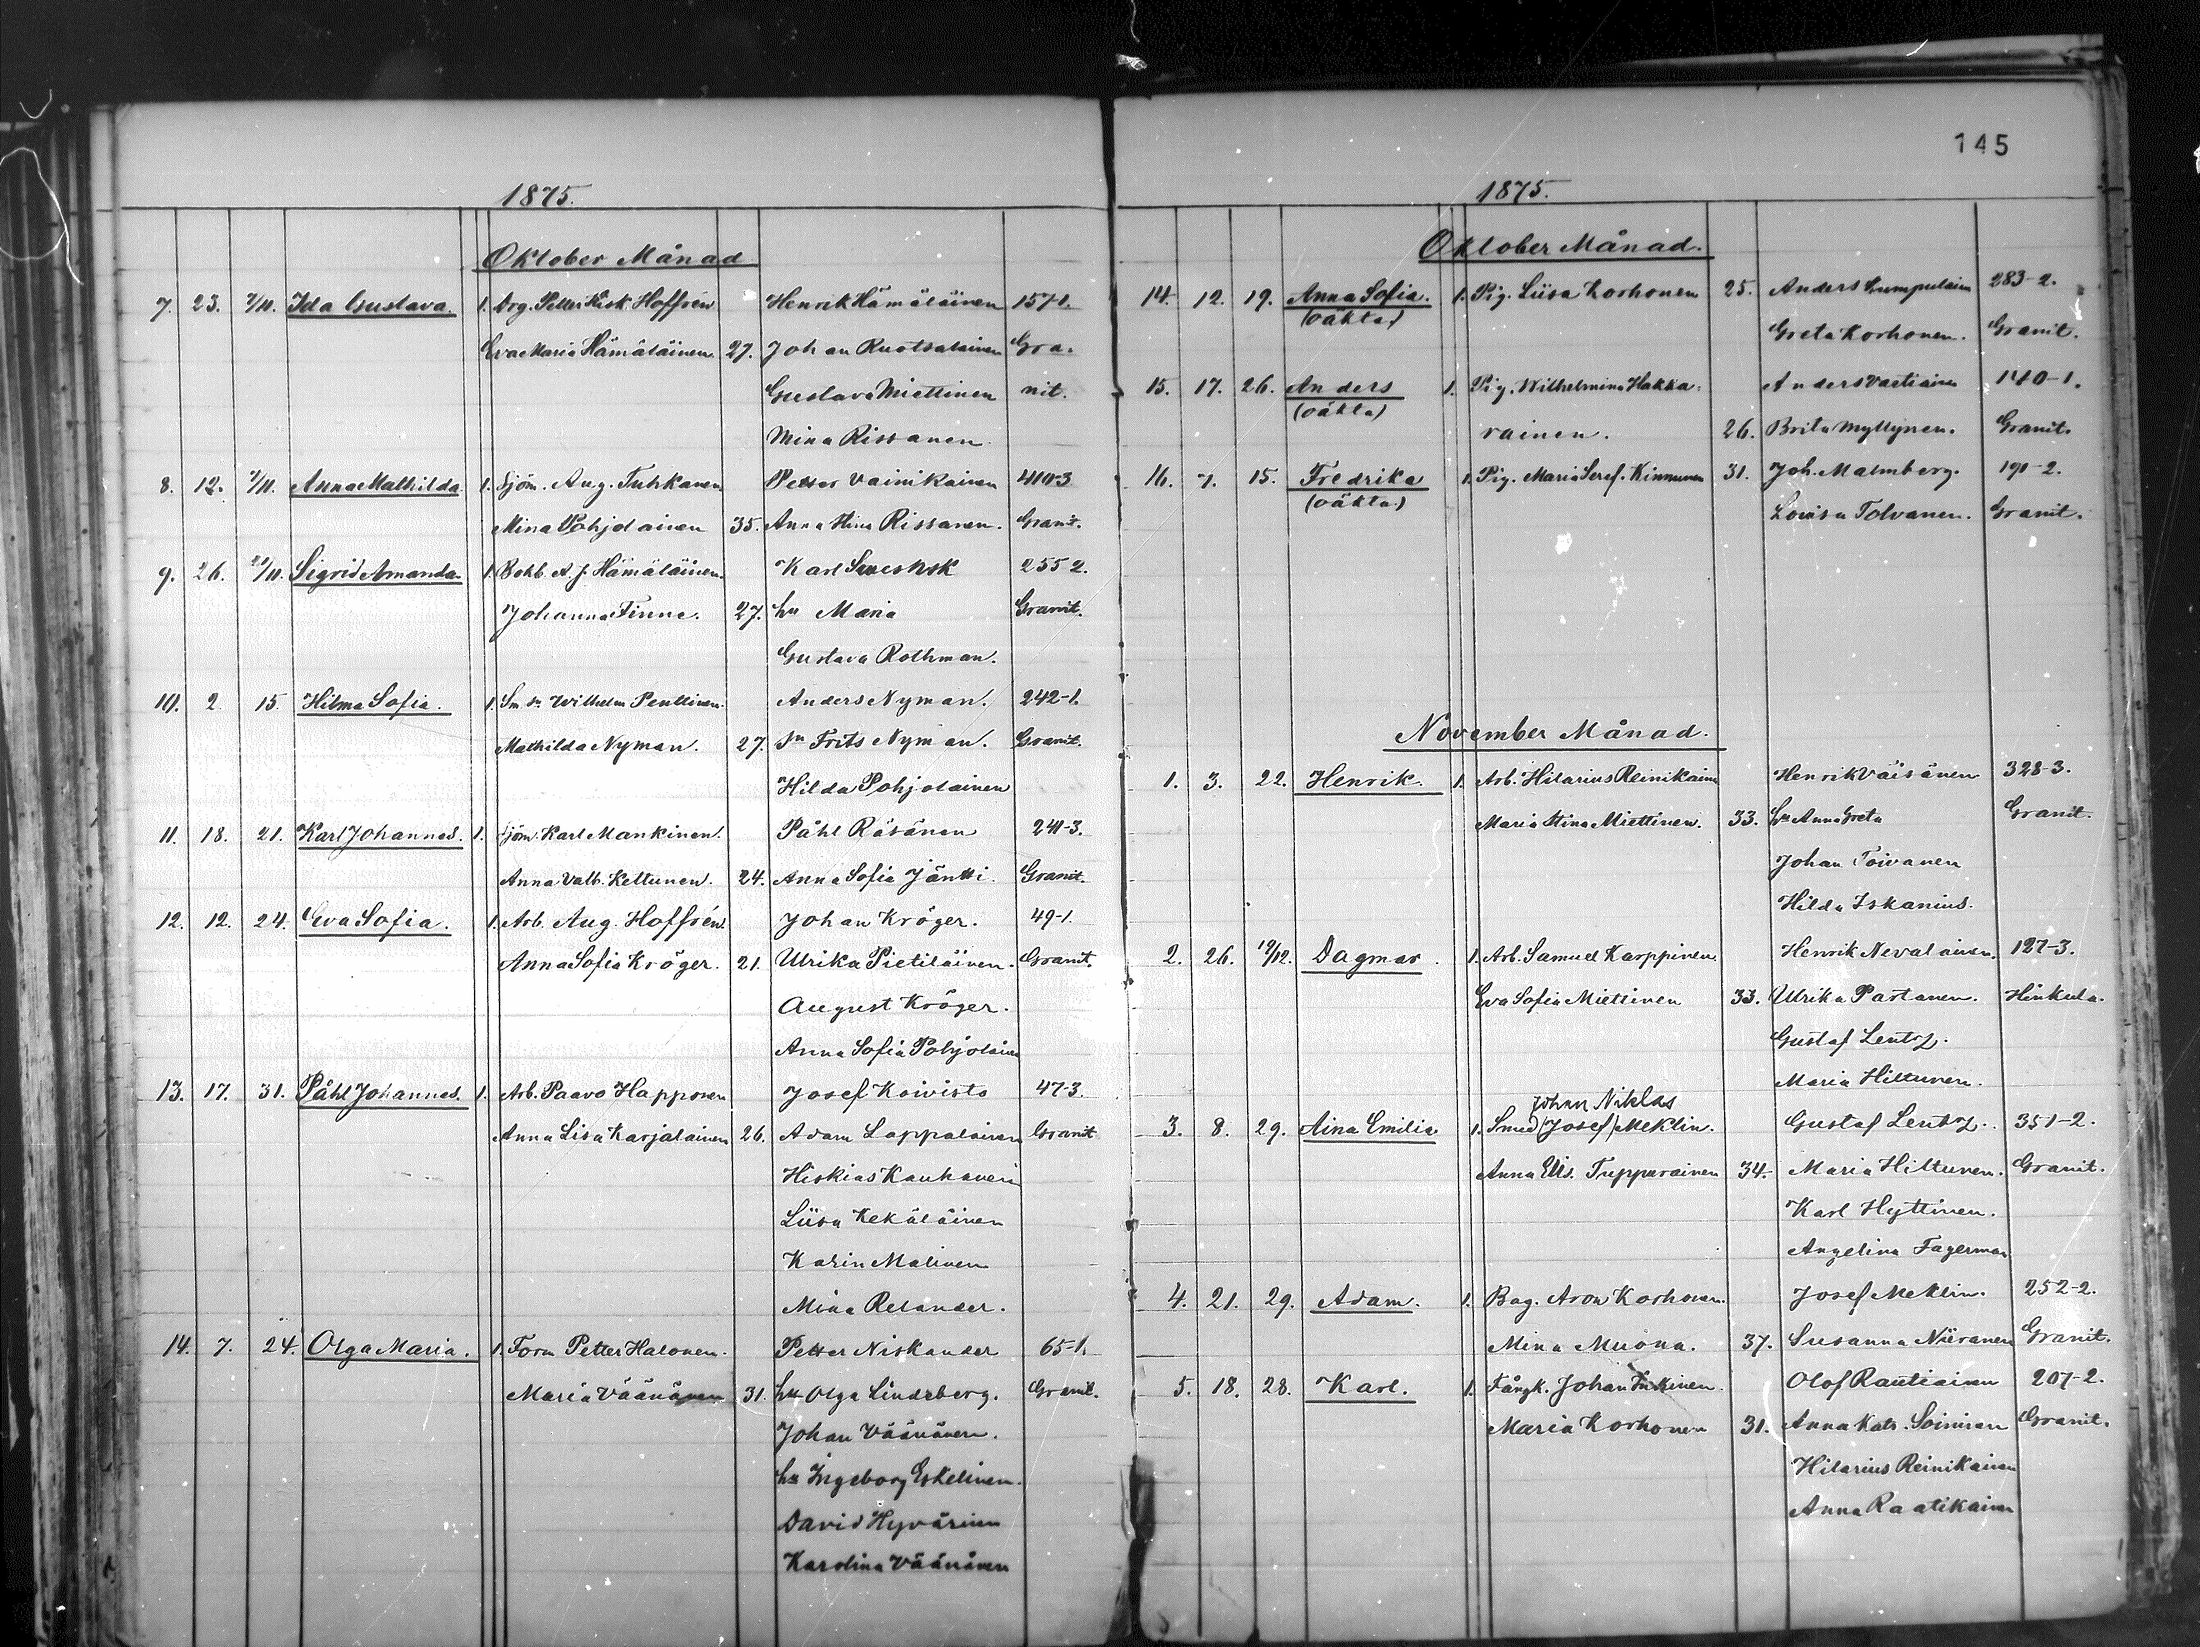 145
1875.
Oktober Månad
7. 23. 7/11. Ida Gustava. 1. Drg. Petter Hofrén Henrik Hämäläinen 157-1.
Eva Maria Hämäläinen 27. Johan Ruotsalainen Gra-
Gustava Miettinen nit.
Mina Rissanen
8. 12. 7/11. Anna Mathilda 1. Sjöm. Aug. Tuhkanen Petter Vainikainen 410-3
Mina Pohjolainen 35. Anna Stina Rissanen. Granit.
9. 26. 21/11. Sigrid Amanda 1. Bokb. A. J. Hämäläinen. Karl Sveshsk 255-2.
Johanna Finne. 27. hu Maria Granit.
Gustava Rothman.
10. 2 15. Hilma Sofia. 1. Sm. Wilhelm Penttinen. Anders Nyman. 242-1.
Mathilda Nyman. 27. Frits Nyman. Granit.
Hilda Pohjolainen
11. 18. 21. Karl Johannes. 1. Sjöm. Karl Mankinen. Påhl Räsänen 241-3.
Anna Valb. Kettunen. 24. Anna Sofia Jäntti. Granit.
12. 12. 24. Eva Sofia. 1. Arb. Aug. Hoffrén Johan Kröger. 49-1.
Anna Sofia Kröger. 21. Ulrika Pietiläinen. Granit.
August Kröger.
Anna Sofia Pohjolainen
13. 17. 31. Påhl Johannes. 1. Arb. Paavo Happonen Josef Koivisto 47-3.
Anna Lisa Karjalainen 26. Adam Lappalainen Granit
Hiskias Kauhanen
Liisa Kekäläinen
Karin Malinen
Mina Relander.
14. 7. 24. Olga Maria. 1. Form Petter Halonen. Petter Niskander 65-1.
Maria Väänänen 31. hu Olga Lindeberg. Granit.
Johan Väänänen.
hu Ingeborg Eskelinen.
David Hyvärinen
Karolina Väänänen
1875.
Oktober Månad.
14. 12. 19. Anna Sofia. 1. Pig. Liisa Korhonen 25. Anders Lumpulain 283-2.
(oäkta) Greta Korhonen. Granit.
15. 17. 26. Anders 1. Pig. Wilhelmina Hakka- Anders Vartiain 140-1.
(oäkta) rainen. 26. Brita Myllynen. Granit.
16. 7. 15. Fredrika 1. Pig. Maria Seref. Kinnunen 31. Joh. Malmberg. 190-2.
(oäkta) Lovisa Tolvanen. Granit.
November Månad.
1. 3. 22. Henrik. 1. Arb. Hilarius Reinikain Henrik Väisänen 328-3.
Maria Stina Miettinen. 33. hu Anna Greta Granit.
Johan Toivanen
Hilda Iskanius.
2. 26. 19/12. Dagmar. 1. Arb. Samuel Karppinen Henrik Nevalainen. 127-3.
Eva Sofia Miettinen 33. Ulrika Partanen. Hinkula.
Gustaf Lentz.
Maria Hiltunen.
Johan Niklas
3. 8. 29. Aina Emilia 1. Smed (Josef) Meklin. Gustaf Lentz. 351-2.
Anna Elis. Tuppurainen 34. Maria Hiltunen. Granit.
Karl Hyttinen.
Angelina Fagerman
4. 21. 29. Adam. 1. Bag. Aron Korhonen. Josef Meklin. 252-2.
Mina Muona. 37. Susanna Niiranen Granit.
5. 18. 28. Karl. 1. Fångk. Johan Inkinen. Olof Rautiainen 207-2.
Maria Korhonen 31. Anna Katr. Soininen Granit.
Hilarius Reinikainen
Anna Raatikainen